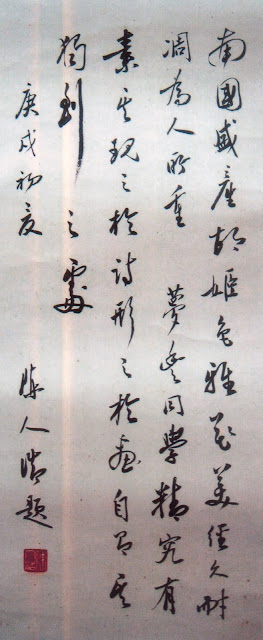 南國盛產胡姬色雅花美經久耐
凋為人所重 夢同學精究有
素其現之於詩形之於畫自有其
獨到之處
庚戌初夏 陳人浩題